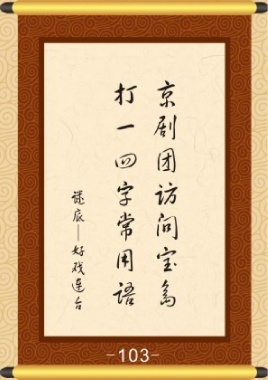 京剧团访问宝岛
打一四字常用语
谜底——好戏连台
-103-